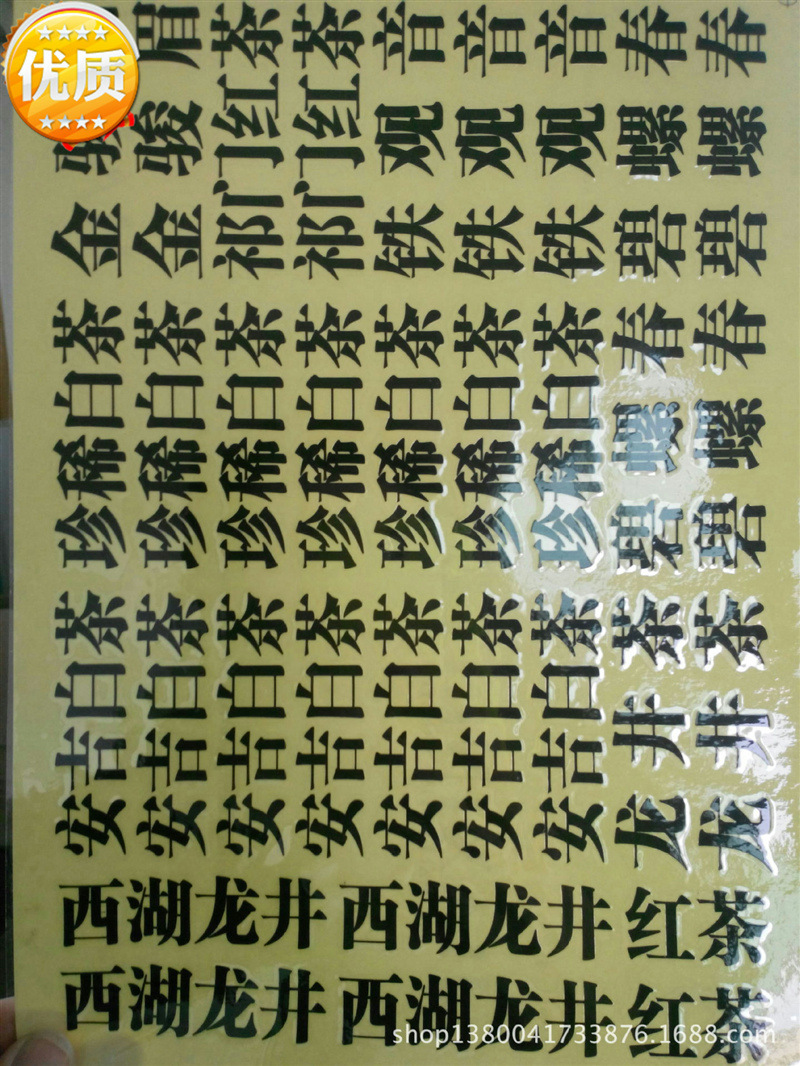 优质
安吉白茶 珍稀白茶 金骏
安吉白茶 珍稀白茶 金骏眉
安吉白茶 珍稀白茶 祁门红茶
安吉白茶 珍稀白茶 祁门红茶
安吉白茶 珍稀白茶 铁观音
安吉白茶 珍稀白茶 铁观音
安吉白茶 珍稀白茶 铁观音
龙井茶 碧螺春 碧螺春
龙井茶 碧螺春 碧螺春
西湖龙井 西湖龙井 红茶
西湖龙井 西湖龙井 红茶
shop1380041733876.1688.com